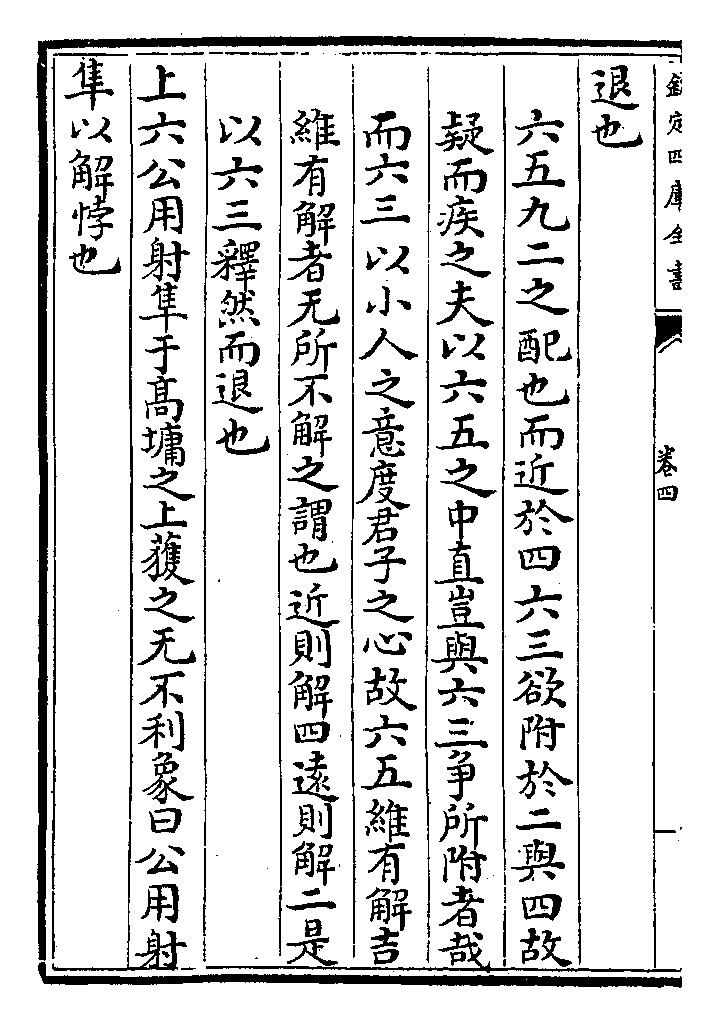 欽定四庫全書
卷四
退也
六五九二之配也而近於四六三欲附於二與四故
疑而疾之夫以六五之中直豈與六三争所附者哉
而六三以小人之意度君子之心故六五維有解吉
維有解者无所不解之謂也近則解四逺則解二是
以六三釋然而退也
上六公用射隼于髙墉之上獲之无不利象曰公用射
隼以解悖也